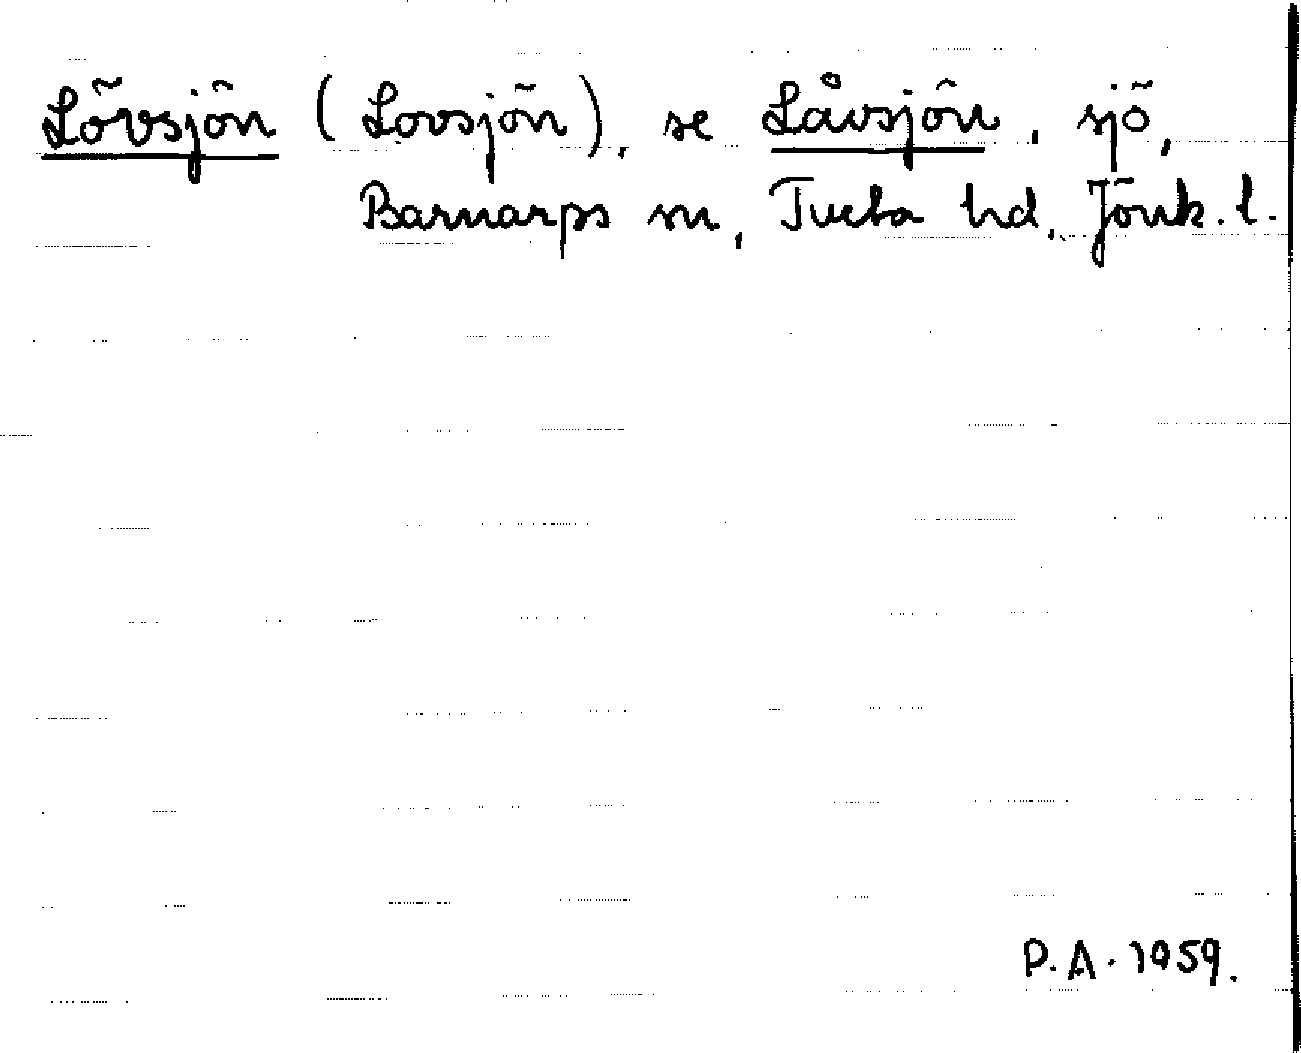 Lövsjön (Lovsjön), se Låvsjön, sjö,
Barnarps sn, Tveta hd, Jönk. l.
P.A. 1959.